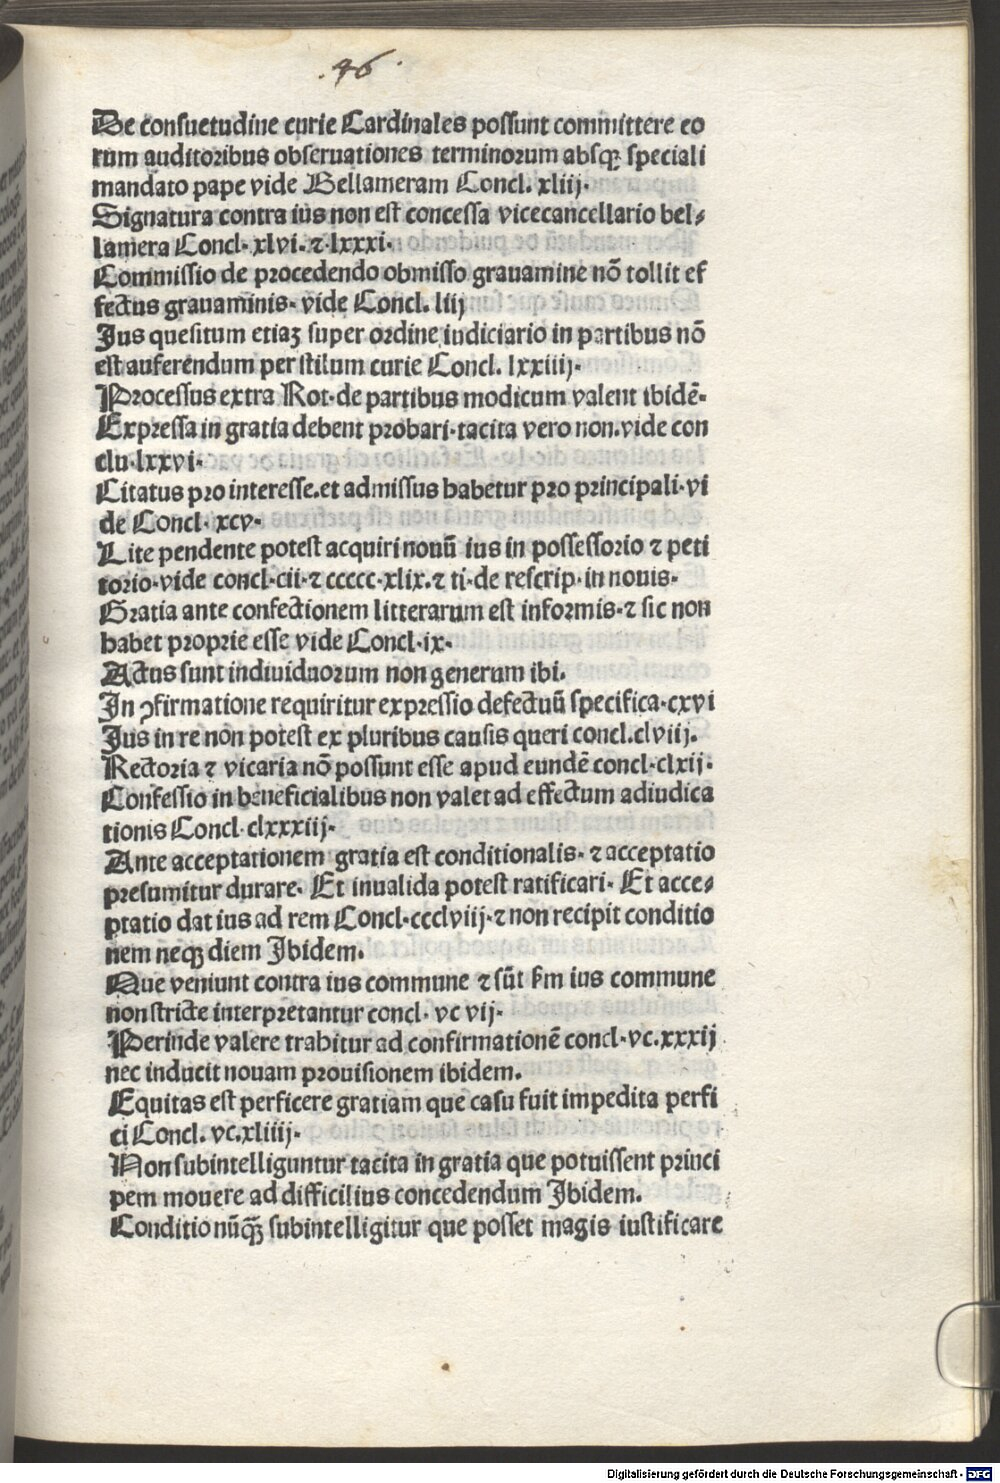 .46.
De consuetudine curie Cardinales possunt committere eo
rum auditoribus obseruationes terminorum absqꝫ speciali
mandato pape vide Bellameram Concl. xliij.
Signatura contra ius non est concessa vicecancellario bel⸗
lamera Concl. xlvi. ⁊ lxxxi.
Commissio de procedendo obmisso grauamine nō tollit ef
fectus grauaminis. vide Concl. liij
Jus quesitum etiaꝫ super ordine iudiciario in partibus nō
est auferendum per stilum curie Concl. lxxiiij.
Processus extra Rot. de partibus modicum valent ibidē.
Expressa in gratia debent probari. tacita vero non. vide con
clu. lxxvi.
Citatus pro interesse. et admissus habetur pro principali. vi
de Concl. xcv.
Lite pendente potest acquiri nouū ius in possessorio ⁊ peti
torio. vide concl. cii. ⁊ ccccc. xlix. ⁊ ti. de rescrip. in nouis.
Gratia ante confectionem litterarum est informis. ⁊ sic non
habet proprie esse vide Concl. ix.
Actus sunt indiuiduorum non generum ibi.
In ꝯfirmatione requiritur expressio defectuū specifica. cxvi
Jus in re non potest ex pluribus causis queri concl. clviij.
Rectoria ⁊ vicaria nō possunt esse apud eundē concl. clxij.
Confessio in beneficialibus non valet ad effectum adiudica
tionis Concl. clxxxiij.
Ante acceptationem gratia est conditionalis. ⁊ acceptatio
presumitur durare. Et inualida potest ratificari. Et acce⸗
ptatio dat ius ad rem Concl. ccclviij. ⁊ non recipit conditio
nem neqꝫ diem Jbidem.
Que veniunt contra ius commune ⁊ sūt ẜm ius commune
non stricte interpretantur concl. vc vij.
Perinde valere trahitur ad confirmationē concl. vc. xxxij
nec inducit nouam prouisionem ibidem.
Equitas est perficere gratiam que casu fuit impedita perfi
ci Concl. vc. xliiij.
Non subintelliguntur tacita in gratia que potuissent princi
pem mouere ad difficilius concedendum Jbidem.
Conditio nūqꝫ̄ subintelligitur que posset magis iustificare
Digitalisierung gefördert durch die Deutsche Forschungsgemeinschaft - DFG